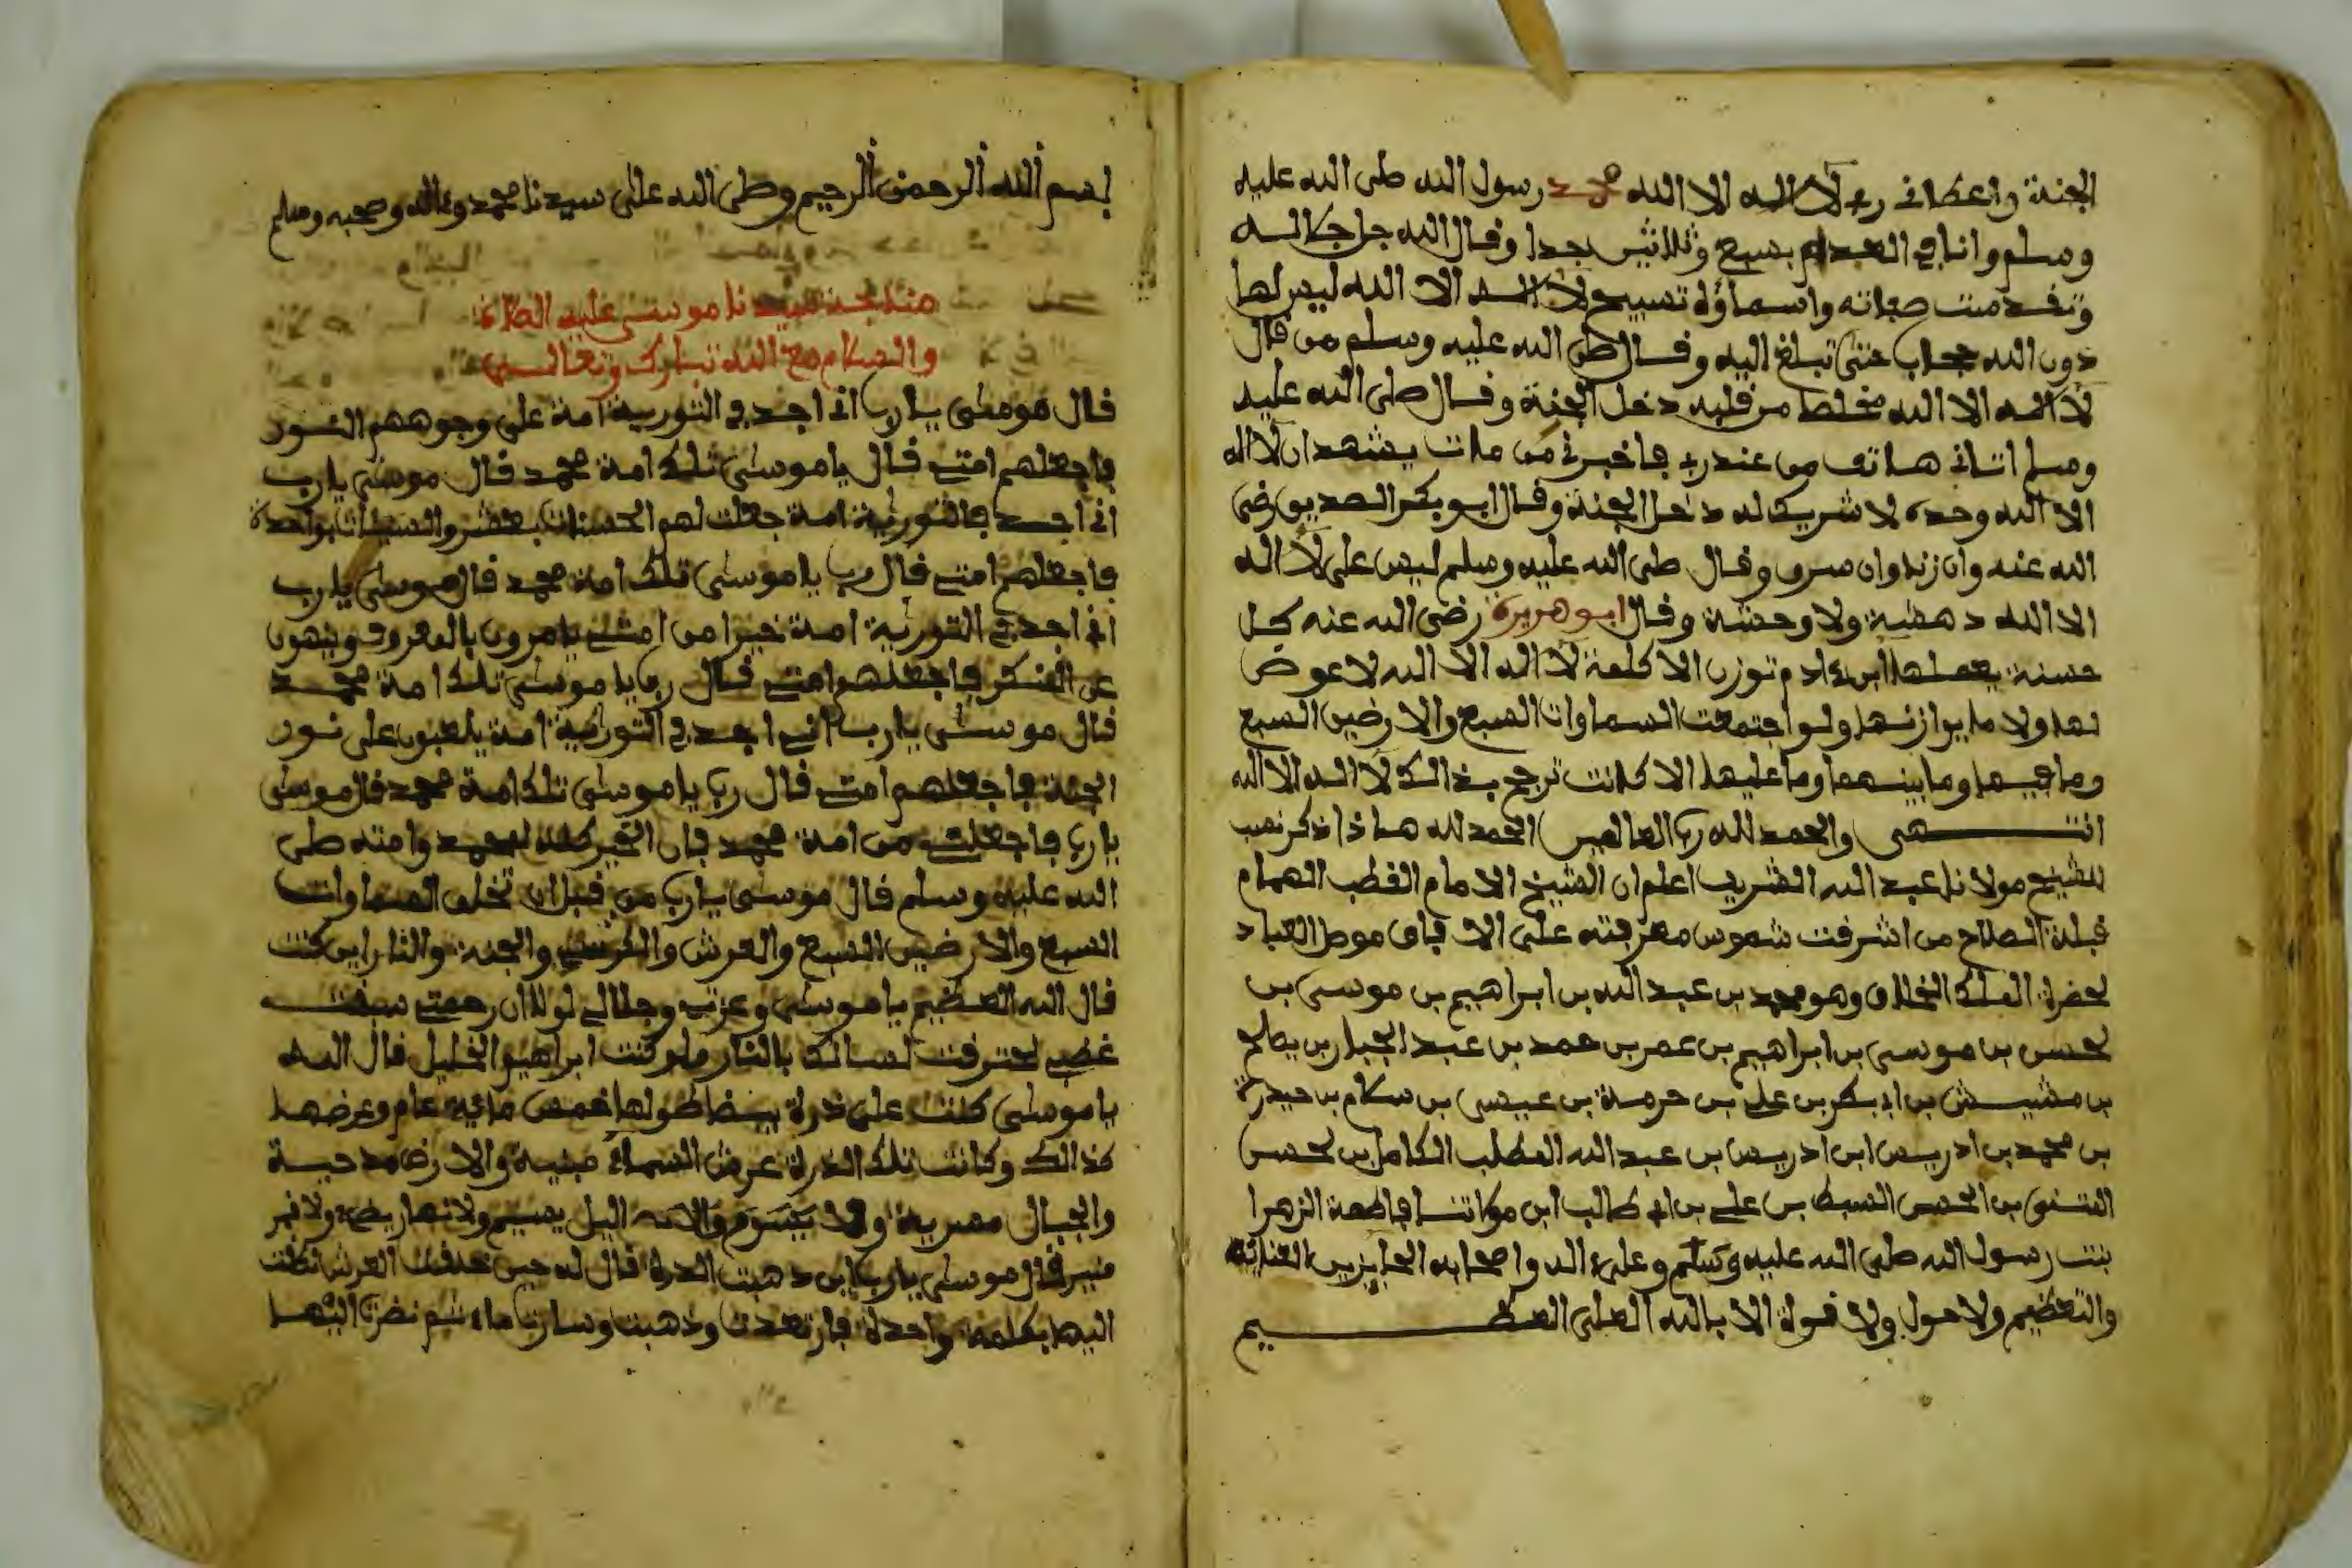 الجنة واعطاني ربي لا اله الا الله محمد رسول الله صلى الله عليه
وسلم وانا في العدم بسبع وثلاثين جدا وقال الله جل جلاله
وتقدست صفاته واسماؤه تسبيح لا اله الا الله ليس لها
دون الله حجاب حتى تبلغ اليه وقال صلى الله عليه وسلم من قال
لا اله الا الله مخلصا من قلبه دخل الجنة وقال صلى الله عليه
وسلم اتاني هاتف من عند ربي فاخبرني من مات يشهد ان لا اله
الا الله وحده لا شريك له دخل الجنة وقال ابو بكر الصديق رضي
الله عنه وان زنا وان سرق وقال صلى الله عليه وسلم ليس على لا اله
الا الله دهشة ولا وحشة وقال ابو هريرة رضي الله عنه كل
حسنة يعملها ابن ءادم توزن الا كلمة لا اله الا الله لا عوض
لها ولا ما يوازنها ولو اجتمعت السماوات السبع والارضين السبع
وما فيهما وما بينهما وما عليها الا كانت ترجح بذالك لا اله الا الله
انتهى والحمد لله رب العالمين الحمد لله هاذا ذكر نسب
للشيخ مولانا عبد الله الشريف اعلم ان الشيخ الامام القطب الهمام
قبلة الصلاح من اشرقت شموس معرفته على الافاق موصل العباد
لحضرة الملك الخلاق وهو محمد بن عبد الله بن ابراهيم بن موسى بن
لحسن بن موسى بن ابراهيم بن عمر بن حمد بن عبد الجبار بن يصالح
بن مشيش بن ابي بكر بن علي بن حرمة بن عيسى بن سلام بن حيدرة
بن محمد بن ادريس ابن ادريس بن عبد الله المطلب الكامل بن لحسن
المثنى بن الحسن السبط بن علي بن ابي طالب ابن مولاتنا فاطمة الزهرا
بنت رسول الله صلى الله عليه وسلم وعلى ءاله واصحابه الحايزين
والتعظيم ولا حول ولا قوة الا بالله العلي العظيم
بسم الله الرحمن الرحيم وصلى الله على سيدنا محمد وءاله وصحبه وسلم
مناجة سيدنا موسى عليه الصلاة
والسلام مع الله تبارك وتعالى
قال موسى يا رب اني اجد في التورية امة على وجوههم النور
فاجعلهم امتي قال يا موسى تلك امة محمد قال موسى يا رب
اني اجد في التورية امة جعلت لهم الحسنات بعشر والسيات بواحدة
فاجعلهم امتي قال رب يا موسى تلك امة محمد قال موسى يا رب
اني اجد في التورية امة خيرا من امتي يامرون بالمعروف وينهون
عن المنكر فاجعلهم امتي قال رب يا موسى تلك امة محمد
قال موسى يا رب اني اجد في التورية امة يلعبون على نور
الجنة فاجعلهم امتي قال رب يا موسى تلك امة محمد قال موسى
يا رب فاجعلني من امة محمد فان الخير كله لمحمد وامته صلى
الله عليه وسلم قال موسى يا رب من قبل ان تخلق السماوات
السبع والارضين السبع والعرش والكرسي والجنة والنار اين كنت
قال الله العظيم يا موسى وعزتي وجلالي لولا ان رحمتي سبقت
غضبي لحترقت لسانك بالنار ولو كنت ابراهيم الخليل قال الله
يا موسى كنت على درة بيضا طولها خمس مائية عام وعرضها
كذالك وكانت تلك الدرة عرض السماء مبنية والارض مدحية
والجبال مصرية ولا يسوم ولا الليل يسيم ولا نهار يضيء ولا قمر
منير قال موسى يا رب اين ذهبت الدرة قال له حين خلقت العرش نظرت
اليها بكلمة واحدة فارتعدت وذهبت وسارت ماء ثم نضرت اليها